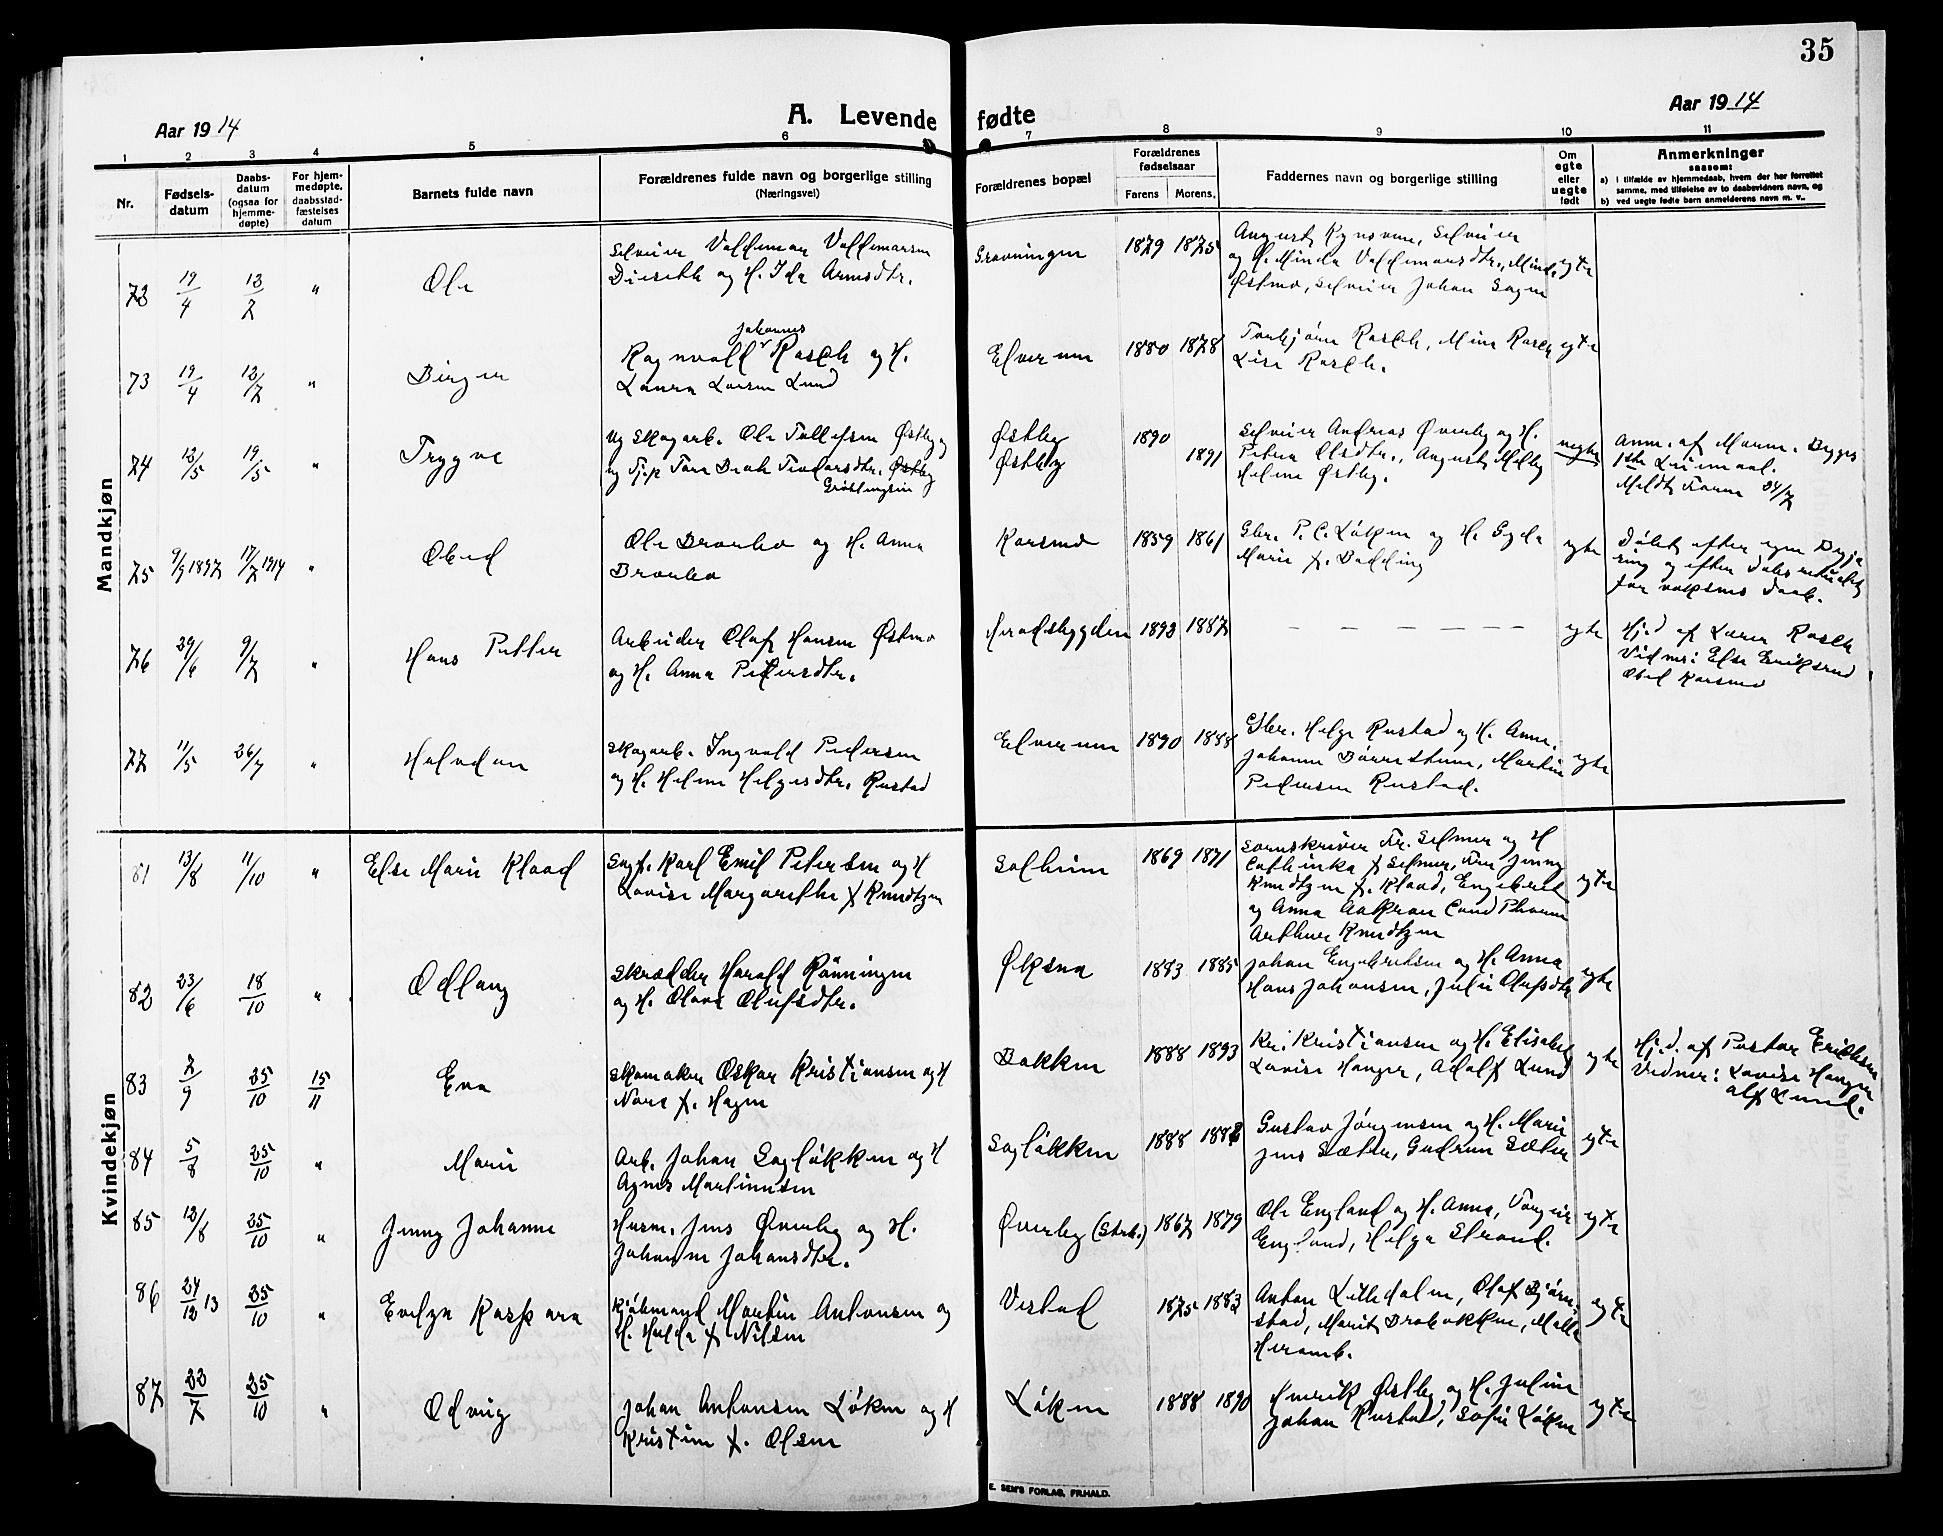 35
Aar 1914
A. Levende fødte
Aar 1914
1 2 3 4 5 6 7 8 9 10 11
Nr.
Fødsels-
datum
Daabs-
datum
(ogsaa for
hjemme-
døpte)
For hjem-
medøpte,
daabsstad-
fæstelses
datum
Barnets fulde navn
Forældrenes fulde navn og borgerlige stilling
(Næringsvei)
Forældrenes bopæl
Forældrenes
fødselsaar
Farens Morens.
Faddernes navn og borgerlige stilling
Om
egte
eller
uegte
født
Anmerkninger
saasom:
a) i tilfælde av hjemmedaab, hvem der har forrettet
samme, med tilføielse av to daabsvidners navn, og
b) ved uegte fødte barn anmelderens navn m. v..
Mandkjøn
72 19/4 12/7 " Ole
Selveier Valdemar Valdemarsen
Diesetk og H. Ida Arnesdtr.
Gravningen 1879 1875
August, Selveier
og H. Minda Valdemarsdtr.,
Østmo, Selveier Johan Sagen
egte
73 19/4 12/7 " Birger
Johannes
Ragnvald Rasch og H.
Laura Larsen Lund
Elverum 1880 1878
Torbjørn Rasch, Mina Rasch
Lise Rasch.
egte
74 12/5 19/5 " Trygve
Ug. Skogarb. Ole Tollefsen Østby og
ug Tj.p. Tora Teodorsdtr. Østby
Grøtlingsie
Østby
Østby
1890
1891
Selveier Andreas Øverby og H.
Petra Olsdtr., August Melby
Helene Østby.
uegte
Anm. af Moren. Begges
1ste Leiermaal.
Meldt Foren 24/7
75 9/9 1897 17/7 1914 " Obed
Ole Braarbo og H. Anna
Braarbo
Karsmo 1859 1861
Gbr. P. C. Løken og H. Gyda
Marie f. Dodding
egte
Døbt efter egen Begjæ
ring og efter Daabsritualet
for voksnes Daab.
76 29/6 9/7 " Hans Petter
Arbeider Olaf Hansen Østmo
og H. Anna Pedersdtr.
Heradsbygden 1893 1887
— — — — — — —
egte
Hjd af Lærer Rasch
Vidner: Else Eriksrud
Obed Karsmo
77 11/5 26/7 " Halvdan
Skogarb. Ingvald Pedersen
og H. Helene Helgesdtr. Rustad
Elverum 1890 1888
Gbr. Helge Rustad og H. Anne.
Johanne Børrestuen, Martin
Pedersen Rustad.
egte
Kvindekjøn
81 13/8 11/10 " Else Marie Klaad
Sagf. Karl Emil Petersen og H
Lovise Margarethe f Knudtzen
Solheim 1869 1871
Sorenskriver Fr. Selmer og H
Cathinka f Selmer, Fru Jenny
Knudtzen f. Klaad, Engebret
og Anna Aakran Cand Pharm
Arthur Knudtzen
egte
82 23/6 18/10 " Odlaug
Skrædder Harald Rønningen
og H. Olava Olufsdtr.
Øksna 1883 1885
Johan Engebretsen og H. Anna
Hans Johansen, Julie Olufsdtr
egte
83 2/9 25/10 15/11 Eva
Skomaker Oskar Kristiansen og H
Nora f. Hagen
Bakken 1888 1893
Kr. Kristiansen og H. Elisabet
Lovise Hanger, Adolf Lund
egte
Hj.d. af Pastor Eriksen
Vidner: Lovise Hanger
Alf Lund.
84 5/8 25/10 " Marie
Arb. Johan Sagløkken og H
Agnes Martinusen
Sagløkken 1888 1888
Gustav Jørgensen og H. Marie
Jens Sæter, Gudrun Sæter
egte
85 12/8 25/10 " Jenny Johanne
Husm. Jens Øverby og H.
Johanne Johansdtr.
Øverby (Strb.) 1867 1879
Ole England og H. Anna, Torger
England, Helga Strand.
egte
86 24/12 13 25/10 " Evelyn Kaspara
Kjøbmand Martin Antonsen og
H. Hulda f Nilsen
Vestad 1875 1882
Anton Lilledalen, Olaf Bjørn-
stad, Marit Brobakken, Malla
Heramb.
egte
87 22/7 25/10 " Odveig
Johan Antonsen Løken og H
Kristine f. Olsen
Løken 1888 1890
Henrik Østby og H. Juline
Johan Rustad, Sofie Løken
egte
E. SEM'S FORLAG, FR.HALD.